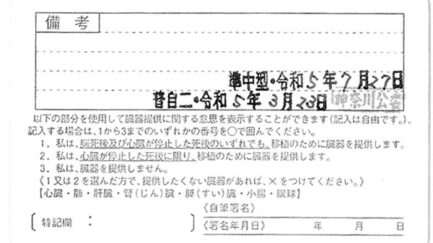 備考
準中型・令和5年7月27日
普自二・令和5年3月23日 神奈川公委
以下の部分を使用して臓器提供に関する意思を表示することができます（記入は自由です。）
記入する場合は、1から3までのいずれかの番号を〇で囲んでください。
1．私は、脳死後及び心臓が停止した死後のいずれでも、移植のために臓器を提供します。
2．私は、心臓が停止した死後に限り、移植のために臓器を提供します。
3．私は、臓器を提供しません。
《1又は2を選んだ方で、提供したくない臓器があれば、×をつけてください。》
【心臓・肺・肝臓・腎（じん）臓・膵（すい）臓・小腸・眼球】
〔特記欄：　〕
《自筆署名》
《署名年月日》　年　月　日